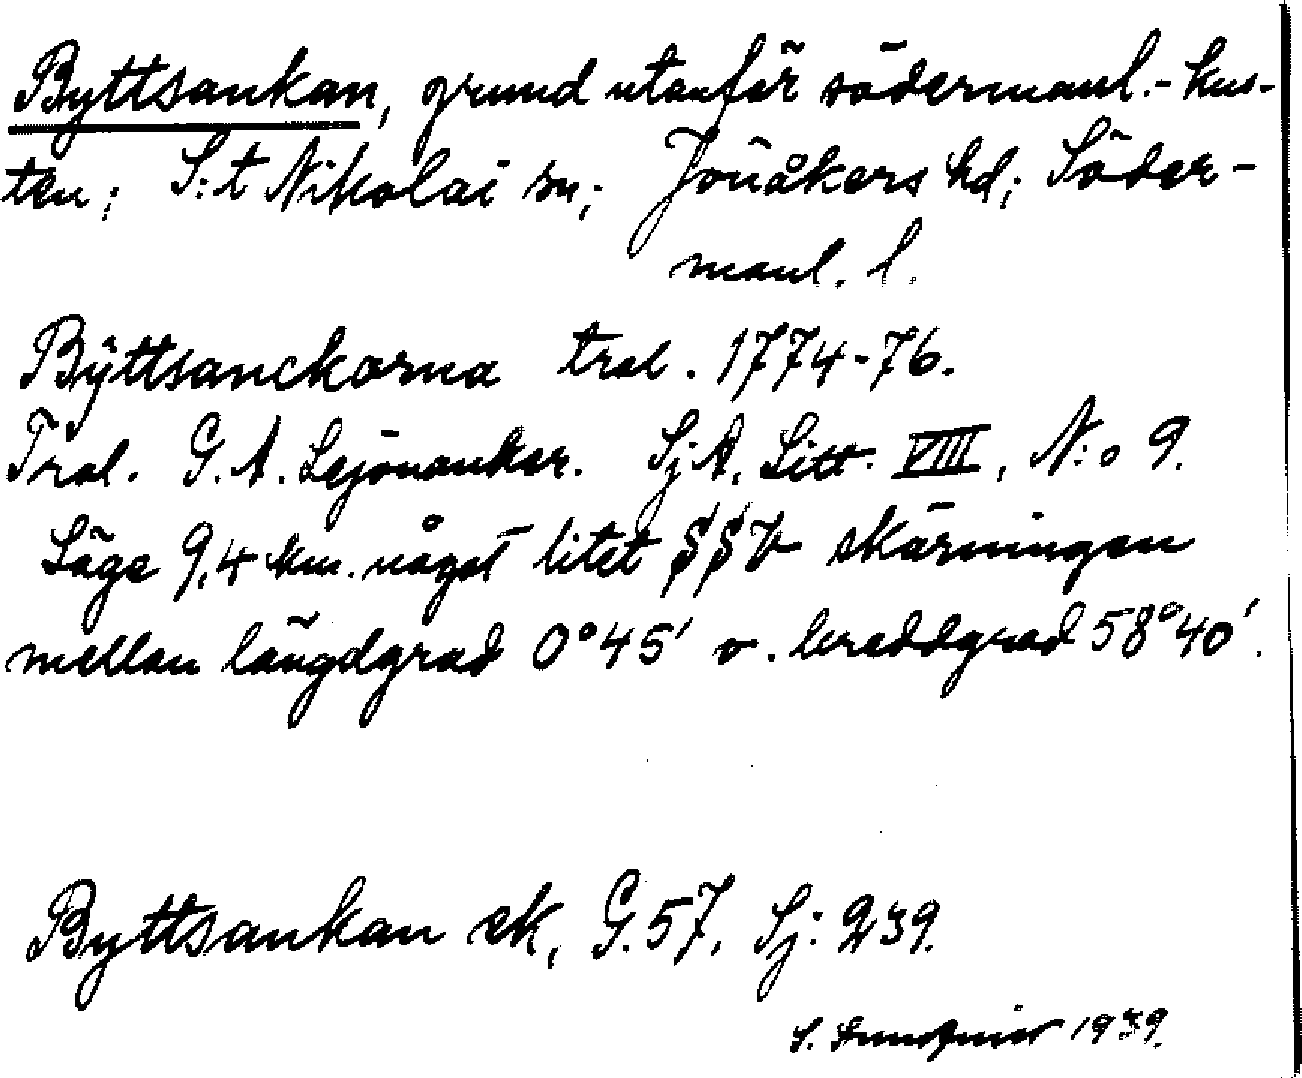 Byttsankan, grund utanför södermanl.-kus-
ten; S:t Nikolai sn; Jönåkers hd; Söder-
manl. l.
Bÿttsanckorna trol. 1774-76.
Trol. G. A. Lejonanker. SjA. Litt. VIII, N:o 9.
Läge 9,4 km. något litet SSV skärningen
mellan längdgrad 0°45' o. breddgrad 58°40'.
Byttsankan ek, G.57, Sj: 239.
S. 1939.